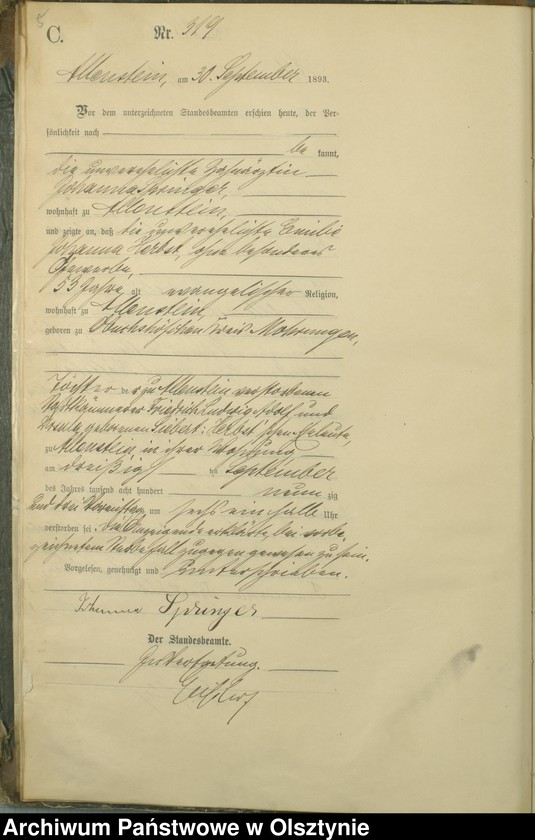 5
C.
Nr. 319
Allenstein, am 30. September 1893.
Vor dem unterzeichneten Standesbeamten erschien heute, der Per-
sönlichkeit nach
be kannt,
die unverehelichte
Johanna Springer,
wohnhaft zu Allenstein,
und zeigte an, daß die unverehelichte Emilie
Johanna Herbst, ohne besonderes
Gewerbe,
53 Jahre alt evangelischer Religion,
wohnhaft zu Allenstein,
geboren zu Kreis Mohrungen,
Tochter der zu Allenstein verstorbenen
Friedrich Ludwig Adolf und
geborenen Siebert: Herbst'schen Eheleute,
zu Allenstein, in ihrer Wohnung
am dreißigsten September
des Jahres tausend acht hundert neun zig
und drei Vormittag um sechs einhalb Uhr
verstorben sei. Die Anzeigende erklärte, bei vorbe-
zeichnetem Sterbefall zugegen gewesen zu sein.
Vorgelesen, genehmigt und unterschrieben.
Johanna Springer
Der Standesbeamte.
In Vertretung.
Archiwum Państwowe w Olsztynie